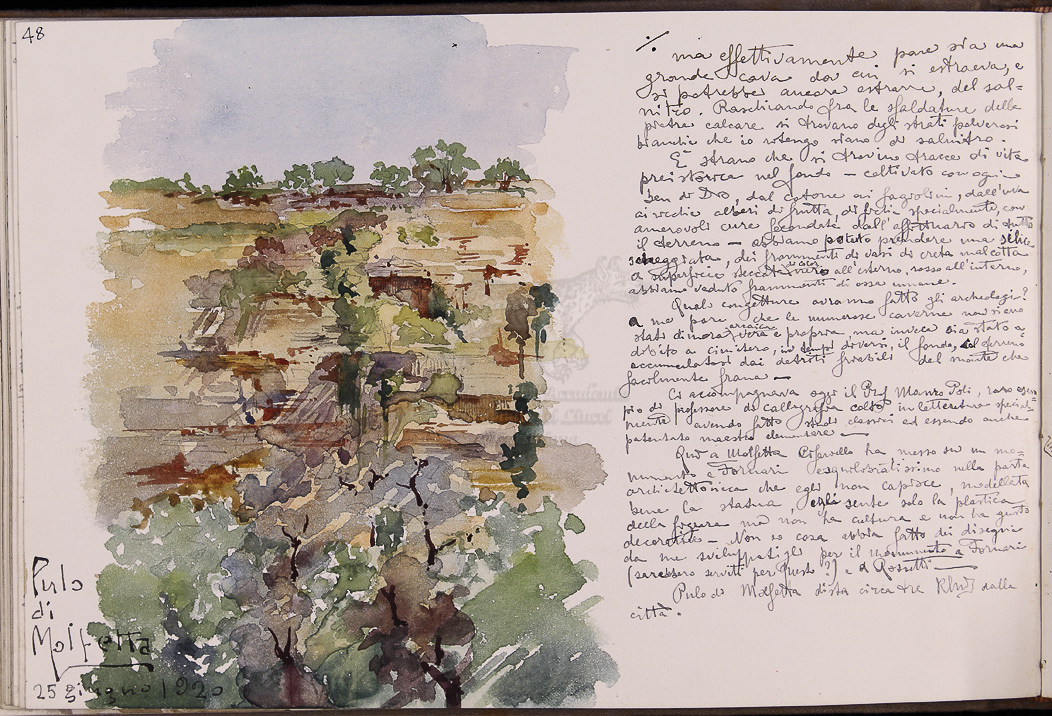 48
./. ma effettivamente pare sia una
grande cava da cui si estraeva, e
si potrebbe ancora estrarre, del sal=
nitro. Raschiando fra le sfaldature della
pietra calcare si trovano degli strati polverosi
bianchi che io ritengo siano di salnitro.
È strano che si trovino tracce di vita
preistorica nel fondo – coltivato con ogni
ben di Dio, dal cotone ai fagiolini, dall'uva
ai vecchi alberi di frutta, di fichi specialmente, con
amorevoli cure fecondate dall'affittuario di tutto
il terreno – abbiamo potuto prendere una silice
scheggiata, dei frammenti di vasi di creta malcotta
a superficie steccata, nero all'esterno, rosso all'interno,
abbiamo veduto frammenti di ossa umane.
Quali congetture avranno fatto gli archeologi?
A me pare che le numerose caverne non sieno
state dimora arcaica vera e propria, ma invece sia stato a
dibito a cimitero, in tempi diversi, il fondo, il terreno
accumulatosi dai detriti friabili del monte che
facilmente frana –
Ci accompagnava oggi il Prf. Mauro Poli, raro esem
pio di professore di calligrafia colto in letteratura special=
mente avendo fatto studi classici ed essendo anche
patentato maestro elementare –
Qui a Molfetta Cifariello ha messo su un mo=
numento a Fornari squilibratissimo nella parte
architettonica che egli non capisce, modellata
bene la statua, egli sente solo la plastica
della figura ma non ha cultura e non ha gusto
decorativo – Non so cosa abbia fatto dei disegni
da me sviluppatigli per il monumento a Fornari
(sarebbero serviti per questo ?) e a Rossetti –
Pulo di Molfetta dista circa tre Klmtri dalla
città.
Pulo
di
Molfetta
25 giugno 1920